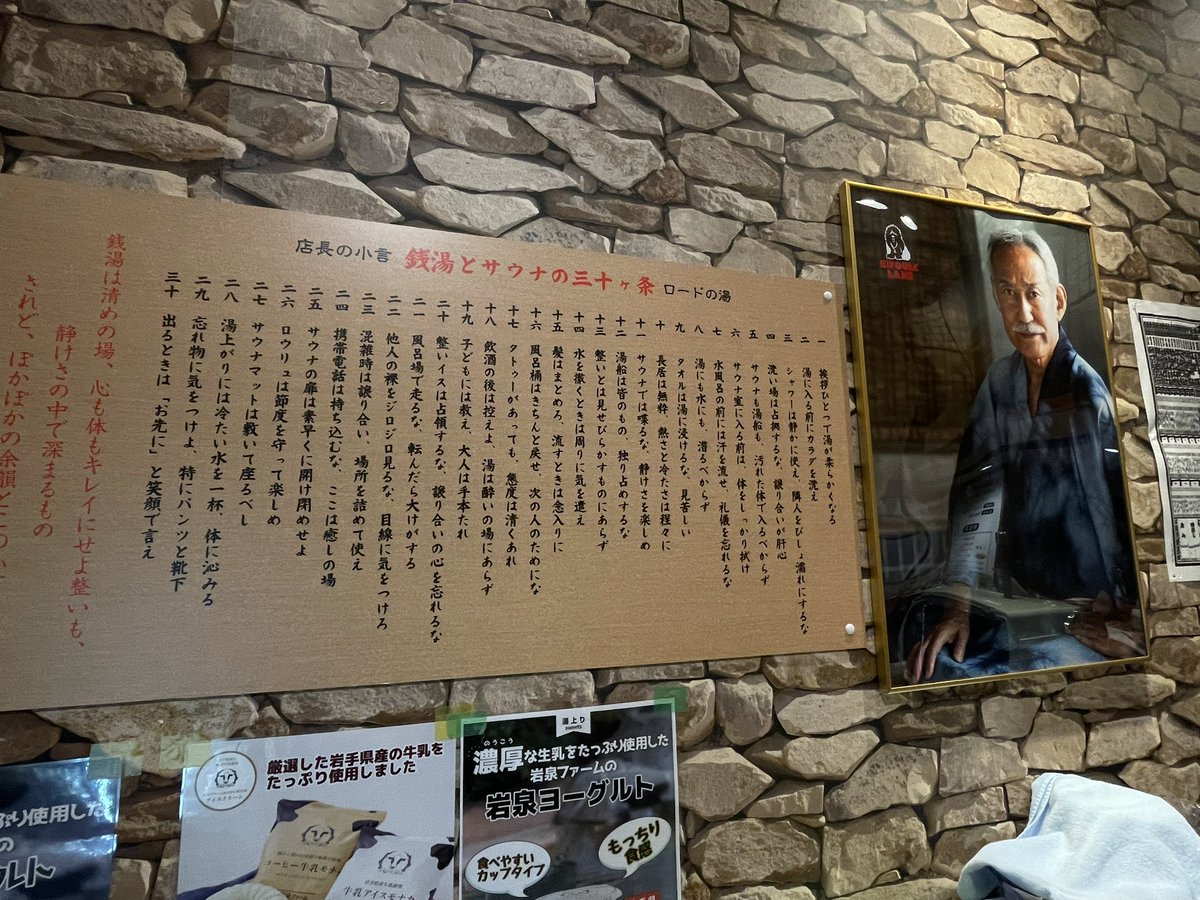 店長の小言 銭湯とサウナの三十ヶ条 ロードの湯
一 挨拶ひとつで湯が柔らかくなる
二 湯に入る前にカラダを洗え
三 シャワーは静かに使え、隣人をびしょ濡れにするな
四 洗い場は占拠するな、譲り合いが肝心
五 サウナも湯船も、汚れた体で入るべからず
六 サウナ室に入る前は、体をしっかり拭け
七 水風呂の前には汗を流せ、礼儀を忘れるな
八 湯にも水にも、潜るべからず
九 タオルは湯に浸けるな、見苦しい
十 長居は無粋、熱さと冷たさは程々に
十一 サウナでは喋るな、静けさを楽しめ
十二 湯船は皆のもの、独り占めするな
十三 整いとは見せびらかすものにあらず
十四 水を撒くときは周りに気を遣え
十五 髪はまとめろ、流すときは念入りに
十六 風呂桶はきちんと戻せ、次の人のためにな
十七 タトゥーがあっても、態度は清くあれ
十八 飲酒の後は控えよ、湯は酔いの場にあらず
十九 子どもには教え、大人は手本たれ
二十 整いイスは占領するな、譲り合いの心を忘れるな
二一 風呂場で走るな、転んだら大けがする
二二 他人の裸をジロジロ見るな、目線に気をつけろ
二三 混雑時は譲り合い、場所を詰めて使え
二四 携帯電話は持ち込むな、ここは癒しの場
二五 サウナの扉は素早くに開け閉めせよ
二六 ロウリュは節度を守って楽しめ
二七 サウナマットは敷いて座るべし
二八 湯上がりには冷たい水を一杯、体に沁みる
二九 忘れ物に気をつけよ、特にパンツと靴下
三十 出るときは「お先に」と笑顔で言え
銭湯は清めの場、心も体もキレイにせよ整いも、
静けさの中で深まるもの
されど、ぽかぽかの余韻と
LAND
厳選した岩手県産の牛乳を
たっぷり使用しました
アイスクリーム
コーヒー牛乳モナカ
牛乳アイスモナカ
湯上り
sweets
のうこう
濃厚な生乳をたっぷり使用した
岩泉ファームの
岩泉ヨーグルト
食べやすい
カップタイプ
もっちり
食感
ぷり使用した
の
グルト